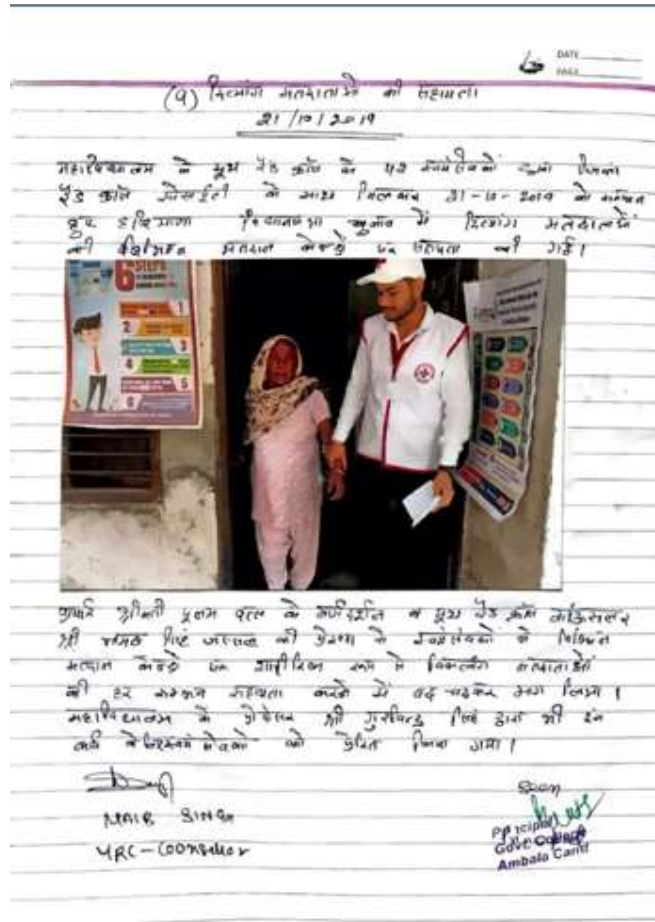 DATE
PAGE
(9) दिव्यांग मतदाताओं की सहायता
21/10/2019
महाविद्यालय के यूथ रैड क्रॉस के 42 स्वयंसेवकों द्वारा जिला
रैड क्रॉस सोसाईटी के साथ मिलकर 21-10-2019 को सम्पन्न
हुए हरियाणा विधानसभा चुनाव में दिव्यांग मतदाताओं
की विभिन्न मतदान केन्द्रों पर सहायता की गई।
6 STEPS
1
2
3
4
5
6
प्राचार्य श्रीमती पूनम वत्स के मार्गदर्शन व यूथ रैड क्रॉस काउंसलर
श्री सिंह की प्रेरणा से स्वयंसेवकों ने विभिन्न
मतदान केन्द्रों पर शारीरिक रूप से विकलांग मतदाताओं
की हर सम्भव सहायता करने में बढ़-चढ़कर भाग लिया।
महाविद्यालय के प्रोफेसर श्री गुरविन्द्र सिंह द्वारा भी इस
कार्य के लिए स्वयं सेवकों को प्रेरित किया गया।
SINGH
YRC-Counsellor
Principal
Govt. College
Ambala Cantt